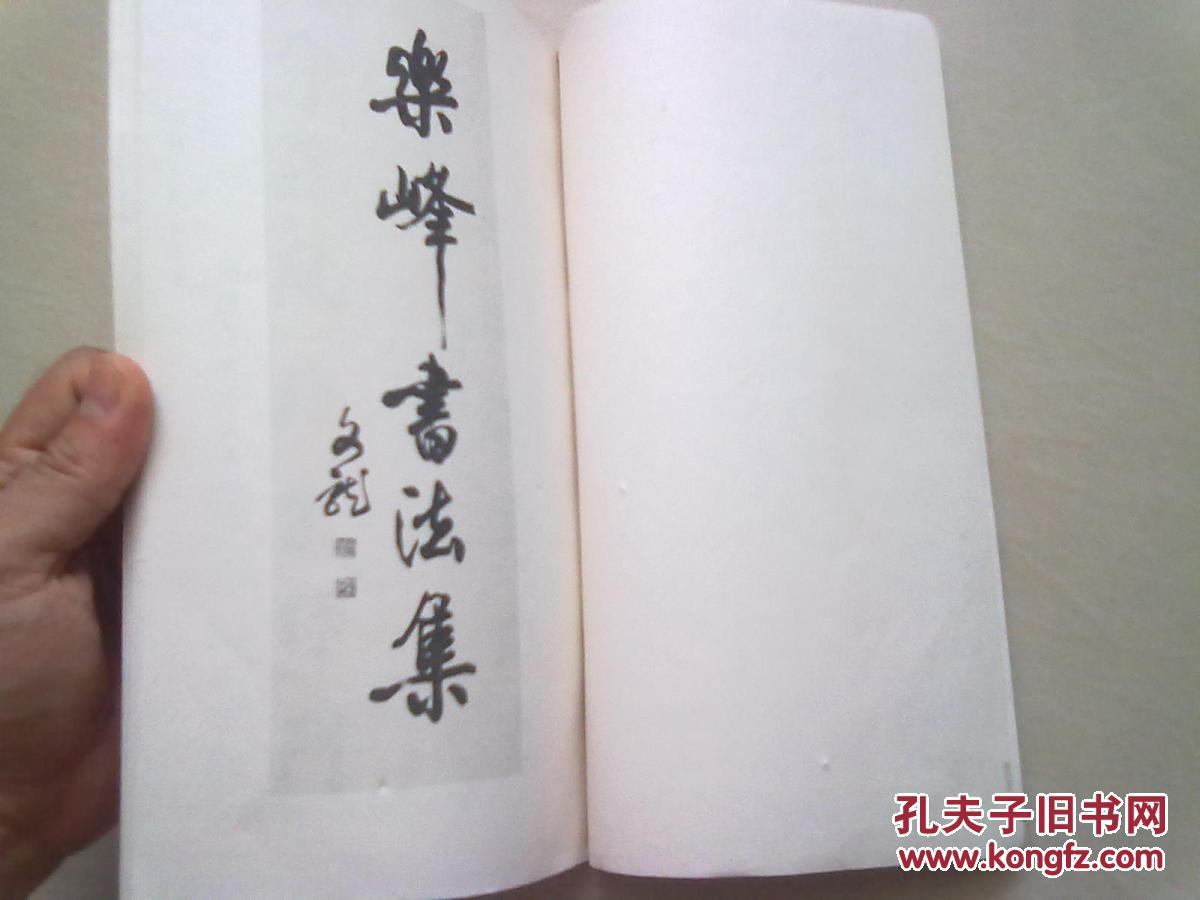 樂峰書法集
文龍
孔夫子旧书网
www.kongfz.com